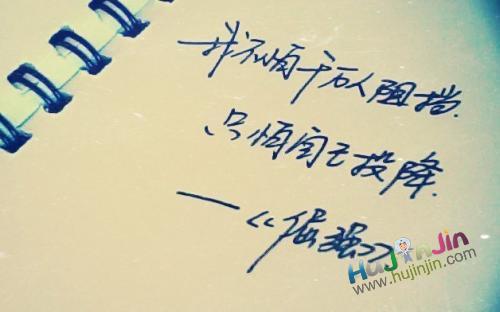 我不怕千万人阻挡.
只怕自己投降.
—《倔强》
HuJinJin
www.hujinjin.com